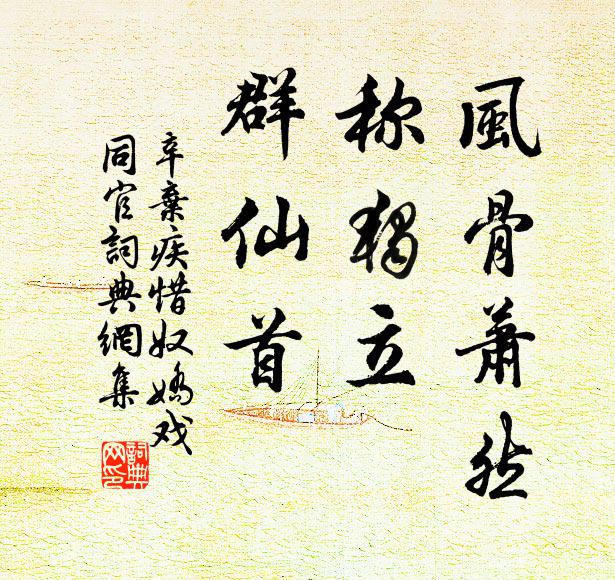 風骨蕭然
称獨立
群仙首
辛棄疾惜奴嬌戏
同官詞典網集
詞典
网印